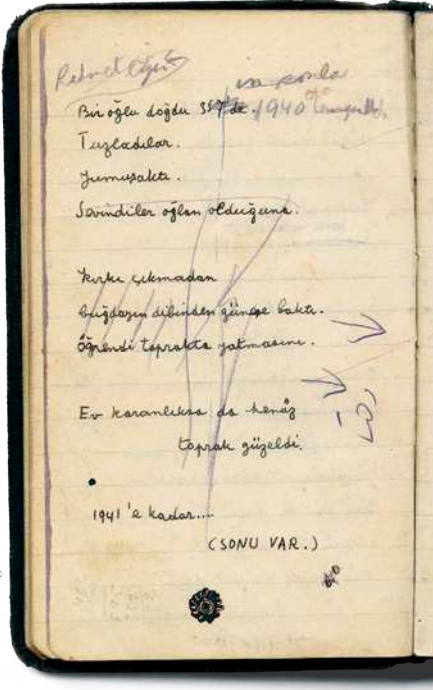 Bir oğlu doğdu 357'de. 1940
Tuzladılar.
Yumuşaktı.
Sevindiler oğlan olduğuna.
Kırkı çıkmadan
buğdayın dibinden güneşe baktı.
Öğrendi toprakta yatmasını.
Ev karanlıksa da henüz
toprak güzeldi.
1941'e kadar....
(SONU VAR.)